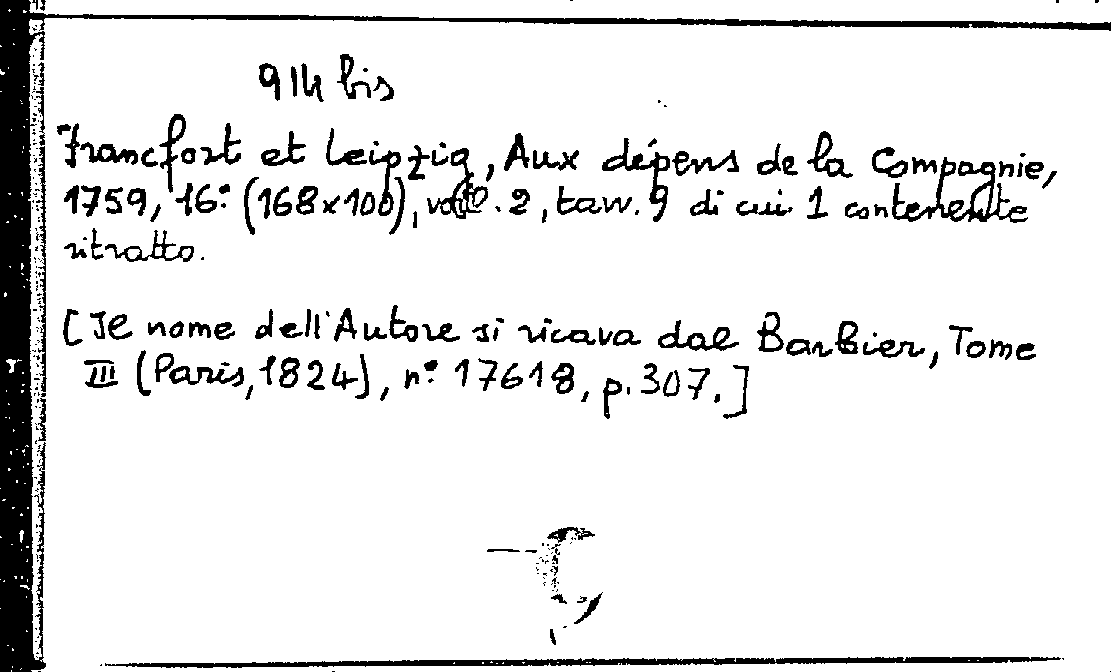 914 bis
Francfort et Leipzig, Aux dépens de la Compagnie,
1759, 16° (168x100), voll. 2, tavv. 9 di cui 1 contenente
ritratto.
[Il nome dell'Autore si ricava dal Barbier, Tome
III (Paris, 1824), n° 17618, p. 307.]